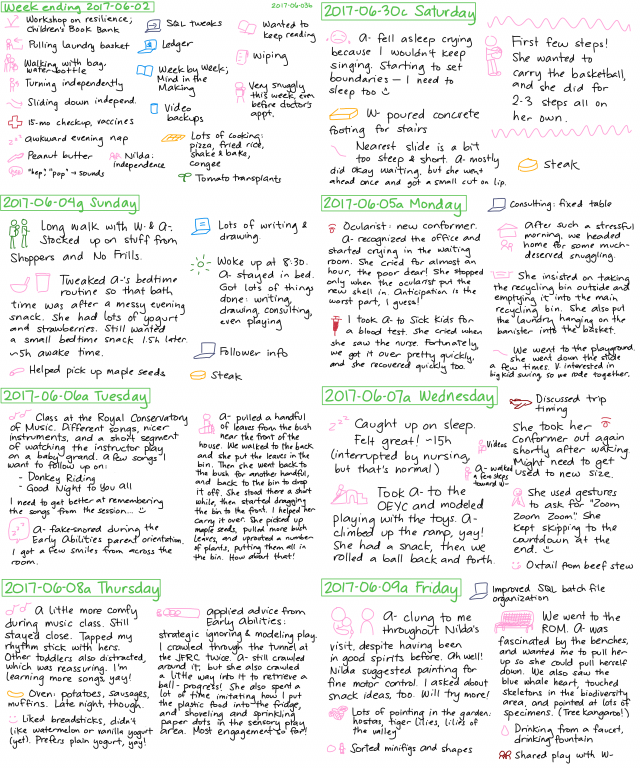 Week ending 2017-06-02
2017-06-03b
Workshop on resilience;
Children's Book Bank
Pulling laundry basket
Walking with bag,
water bottle
Turning independently
Sliding down independ.
15-mo checkup, vaccines
awkward evening nap
Peanut butter
Nilda:
independence
"hep", "pop" → sounds
SQL tweaks
Ledger
Week by week;
Mind in the
Making
Video
backups
Lots of cooking:
pizza, fried rice,
shake & bake,
congee
Tomato transplants
Wanted to
keep reading
Wiping
Very snuggly
this week, even
before doctor's
appt.
2017-06-03c Saturday
A- fell asleep crying
because I wouldn't keep
singing. Starting to set
boundaries – I need to
sleep too
W- poured concrete
footing for stairs
Nearest slide is a bit
too steep & short. A- mostly
did okay waiting, but she went
ahead once and got a small cut on lip.
First few steps!
She wanted to
carry the basketball,
and she did for
2-3 steps all on
her own.
steak
2017-06-04g Sunday
Long walk with W- & A-.
Stocked up on stuff from
Shoppers and No Frills.
Tweaked A-'s bedtime
routine so that bath
time was after a messy evening
snack. She had lots of yogurt
and strawberries. Still wanted
a small bedtime snack 1.5h later.
~5h awake time.
Helped pick up maple seeds
Lots of writing &
drawing.
Woke up at 8:30.
A- stayed in bed.
Got lots of things
done: writing,
drawing, consulting,
even playing
Follower info
Steak
2017-06-05a Monday
Ocularist: new conformer.
A- recognized the office and
started crying in the waiting
room. She cried for almost an
hour, the poor dear! She stopped
only when the ocularist put the
new shell in. Anticipation is the
worst part, I guess!
I took A- to Sick Kids for
a blood test. She cried when
she saw the nurse. Fortunately,
we got it over pretty quickly,
and she recovered quickly too.
Consulting: fixed table
After such a stressful
morning, we headed
home for some much-
deserved snuggling.
She insisted on taking
the recycling bin outside and
emptying it into the main
recycling bin. She also put
the laundry hanging on the
banister into the basket.
We went to the playground.
she went down the slide
a few times. V. interested in
big kid swing, so we rode together.
2017-06-06a Tuesday
Class at the Royal Conservatory
of Music. Different songs, nicer
instruments, and a short segment
of watching the instructor play
on a baby grand. A few songs I
want to follow up on:
- Donkey Riding
- Good Night to You All
I need to get better at remembering
the songs from the session...
A- fake-snored during the
Early Abilities parent orientation.
I got a few smiles from across the
room.
A- pulled a handful
of leaves from the bush
near the front of the
house. We walked to the back
and she put the leaves in the
bin. Then she went back
to the bush for another handful,
and back to the bin to drop
it off. She stood there a short
while, then started dragging
the bin to the front. I helped her
carry it over. She picked up
maple seeds, pulled more bush
leaves, and uprooted a number
of plants, putting them all in
the bin. How about that!
2017-06-07a Wednesday
Caught up on sleep.
Felt great! ~15h
(interrupted by nursing,
but that's normal)
Videos
A- walked
a few steps
toward W-
Took A- to the
OEYC and modeled
playing with the toys. A-
climbed up the ramp, yay!
She had a snack, then we
rolled a ball back and forth.
Discussed trip
timing
She took her
conformer out again
shortly after waking.
Might need to get
used to new size.
She used gestures
to ask for "Zoom
Zoom Zoom." She
kept skipping to the
countdown at the
end.
Oxtail from beef stew
2017-06-08a Thursday
A little more comfy
during music class. Still
stayed close. Tapped my
rhythm stick with hers.
Other toddlers also distracted,
which was reassuring. I'm
learning more songs, yay!
Oven: potatoes, sausages,
muffins. Late night, though.
Liked breadsticks, didn't
like watermelon or vanilla yogurt
(yet). Prefers plain yogurt, yay!
applied advice from
Early Abilities:
strategic ignoring & modeling play.
I crawled through the tunnel at
the JFRC twice. A- still crawled
around it, but she also crawled
a little way into it to retrieve a
ball - progress! She also spent a
lot of time imitating how I put
the plastic food into the fridge,
and shoveling and sprinkling
paper dots in the sensory play
area. Most engagement so far!
2017-06-09a Friday
A- clung to me
throughout Nilda's
visit, despite having been
in good spirits before. Ah well!
Nilda suggested painting for
fine motor control. I asked about
snack ideas, too. Will try more!
Lots of pointing in the garden:
hostas, tiger lilies, lilies of
the valley
Sorted minifigs and shapes
Improved SQL batch file
organization
We went to the
ROM. A- was
fascinated by the benches,
and wanted me to pull her
up so she could pull herself
down. We also saw the
blue whale heart, touched
skeletons in the biodiversity
area, and pointed at lots of
specimens. (Tree kangaroo!)
Drinking from a faucet,
drinking fountain
Shared play with W-